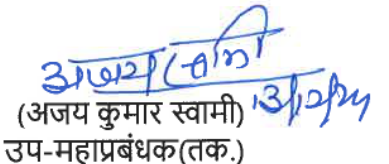 अजय
(अजय कुमार स्वामी)
उप-महाप्रबंधक(तक.)